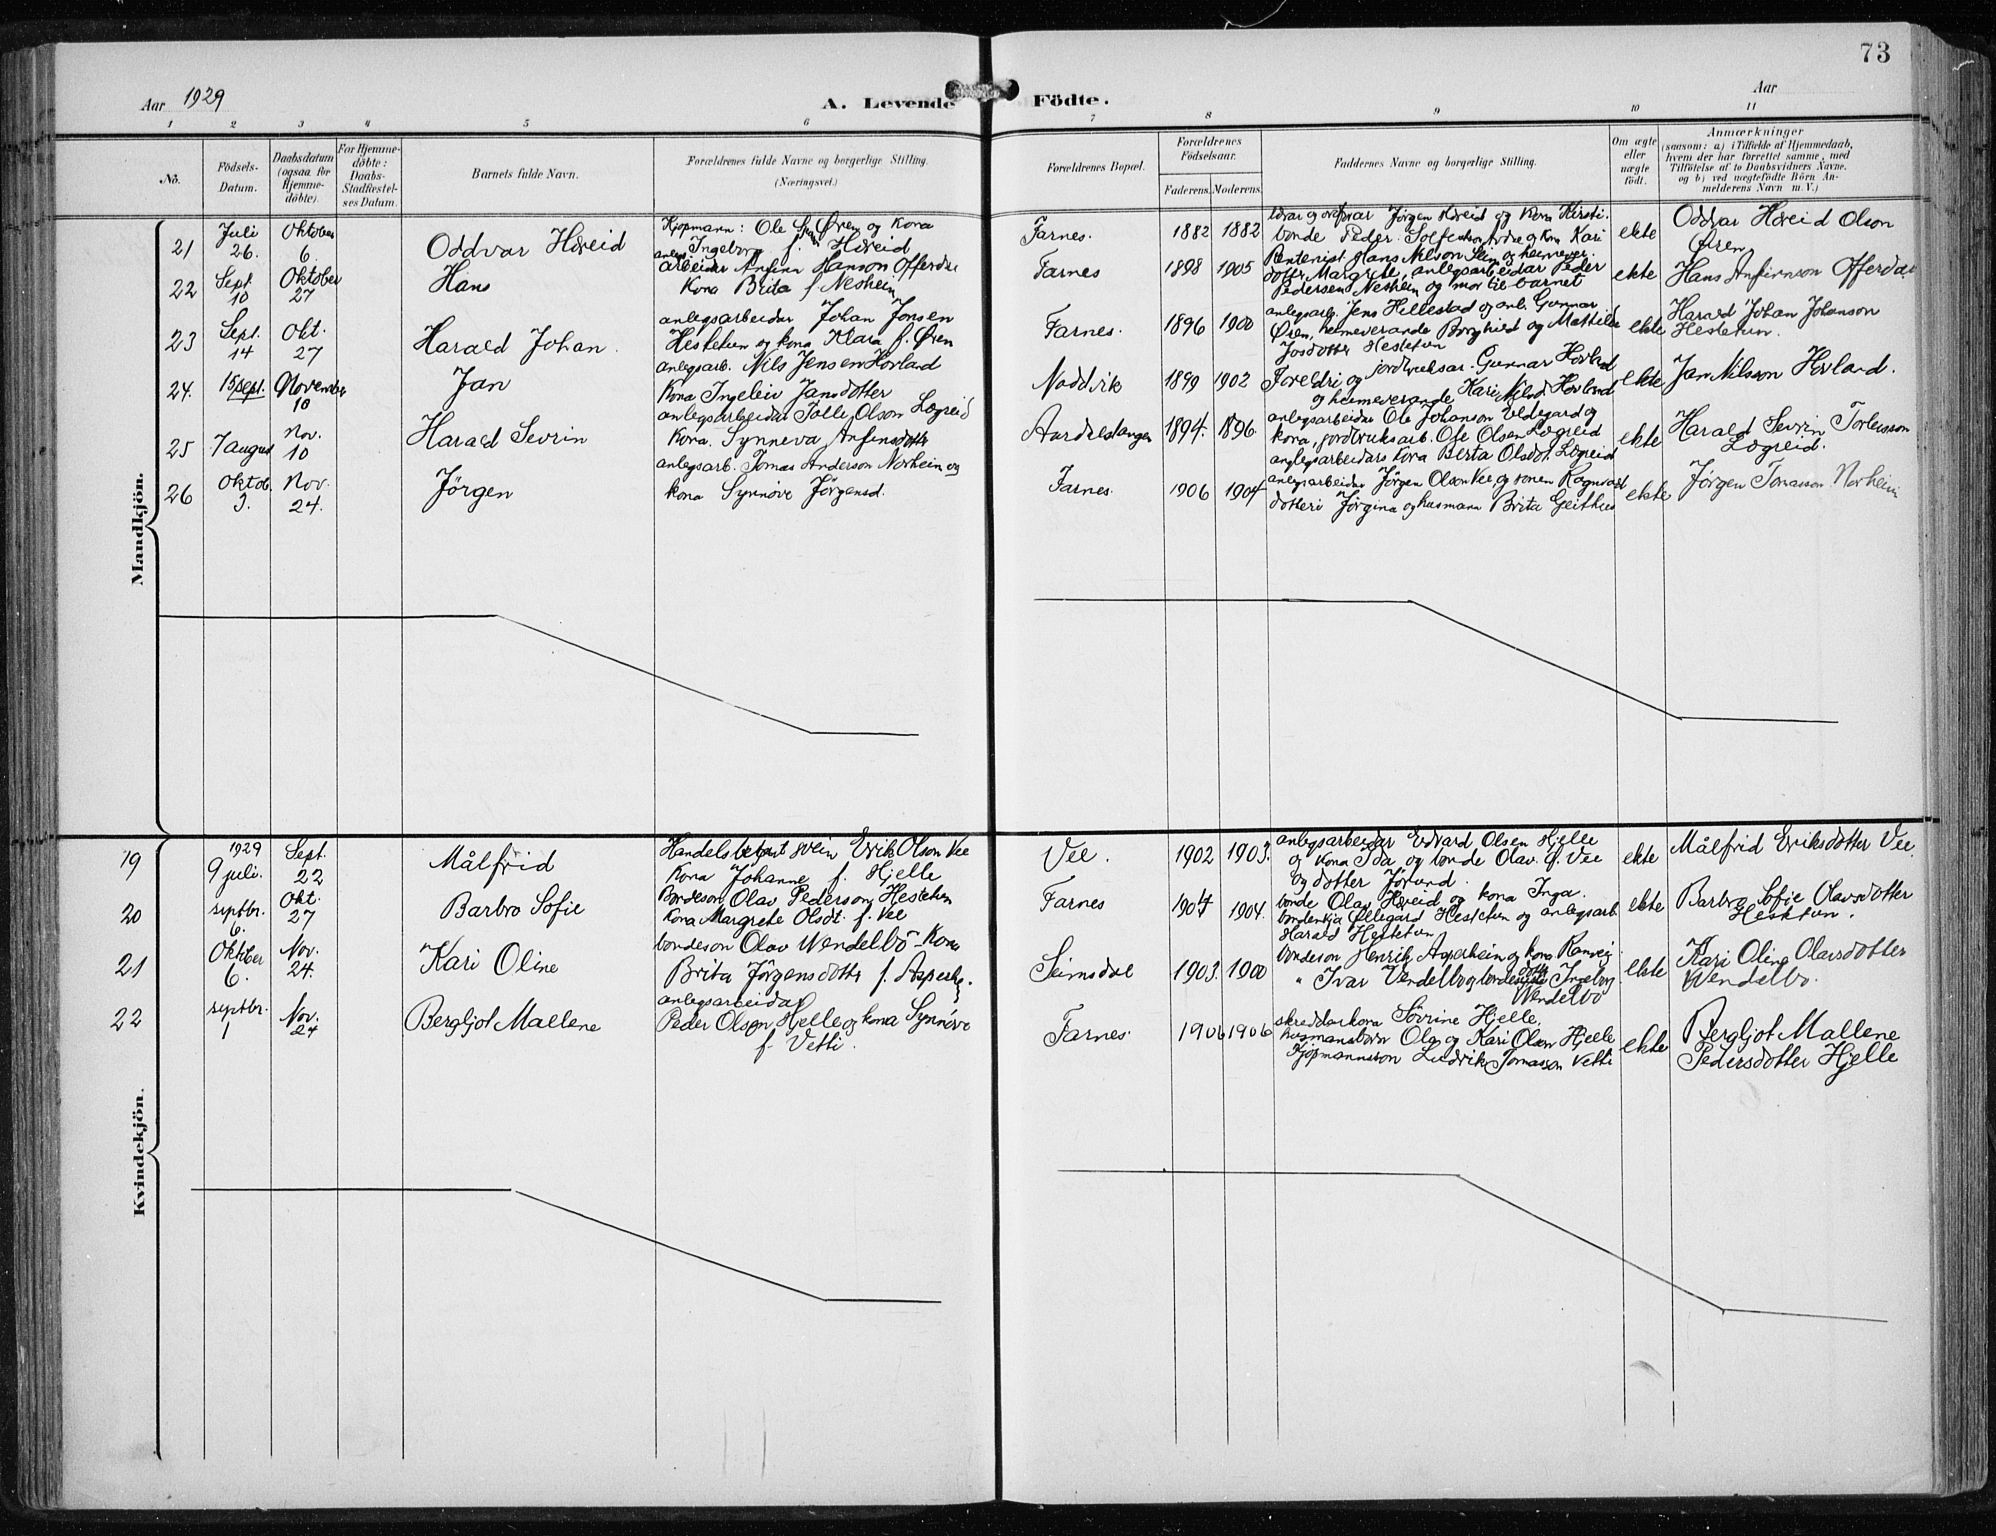 73
Aar 1929
A. Levende Födte.
Aar
1 2 3 4 5 6 7 8 9 10 11
No.
Födsels-Datum.
Daabsdatum (ogsaa for Hjemme-döbte).
For Hjemme-döbte: Daabs-Stadfestel-ses Datum.
Barnets fulde Navn.
Forældrenes fulde Navne og borgerlige Stilling.
(Næringsvei.)
Forældrenes Bopæl.
Forældrenes Födselsaar.
Faderens. Moderens.
Faddernes Navne og borgerlige Stilling.
Om ægte eller uægte födt.
Anmærkninger
(saasom: a) i Tilfælde af Hjemmedaab, hvem der har forrettet samme, med Tilföielse af to Daabsvidners Navne. og b) ved uægtefödte Börn An-melderens Navn m. V.)
Mandkjön.
21 Juli 26. Oktober 6. Oddvar Hæreid
Kjøpmann: Ole Øren og kona
Ingeborg f. Hæreid
Farnes. 1882 1882
Jørgen Hæreid og kona Kirsti.
bonde Peder og kona Kari
ekte
Oddvar Hæreid Olson
Øren
22 Sept. 10 Oktober 27 Hans
arbeidar Anfinn Hanson Offerdal
kona Brita f. Nesheim
Farnes 1898 1905
Rentenist Hans Nilson og heimever.
dotter Margrete, anlegsarbeidar Peder
Pedersen Nesheim og mor til barnet
ekte
Hans Anfinnson Offerdal
23 Sept. 14 Okt. 27 Harald Johan.
anlegsarbeidar Johan Jonsen
Hestetun og kona Klara f. Øren
Farnes. 1896 1900
anlegsarb. Jens Hellestad og anl. Gunnar
Øren, heimeverande Borghild og Mathilde
Josdotter Hestetun
ekte
Harald Johan Johanson
Hestetun.
24. 15 sept. November 10 Jan
anlegsarb. Nils Jensen Hovland
kona Ingeleiv Jansdotter
Naddvik 1899 1902
Foreldri og jordbruksar. Gunnar Hovland
og heimeverande Kari Nilsd. Hovland
ekte
Jan Nilsson Hovland.
25 7 august Nov. 10 Harald Sevrin
anlegsarbeidar Tolle Olson Lægreid
kona. Synneva Anfinsdotter
Aardalstangen 1894. 1896.
anlegsarbeidar Ole Johanson Eldegard og
kona, jordbruksarb. Ole Olsen Lægreid
anglegsarbeidars kona Berta Olsdot. Lægreid
ekte
Harald Sevrin
Lægreid.
26 Oktob. 3. Nov. 24. Jörgen
anlegsarb. Tomas Anderson Norheim og
kona Synnøve Jørgensd.
Farnes. 1906 1904
anlegsarbeidar Jørgen Olson Vee og sonen Ragnvald
dotteri Jørgina og husmann Brita Geithus
ekte
Jørgen Tomasson Norheim
Kvindekjön.
19 1929 9 juli. Sept. 22 Målfrid
Erik Olson Vee
kona Johanne f. Hjelle
Vee. 1902 1903.
anlegsarbeidar Edvard Olsen Hjelle
og kona Ida og bonde Olav O. Vee
og dotter Jørund.
ekte
Målfrid Eriksdotter Vee
20 septbr. 6. Okt. 27 Barbro Sofie
Bondeson Olav Pederson Hestetun
kona Margrete Olsdt. f. Vee
Farnes 1904 1904.
bonde Olav Hæreid og kona Inga.
bondenkja Øllegard Hestetun og anlegsarb.
Harald Hestetun
ekte
Barbro Sofie Olavsdotter
Hestetun.
21 Oktober 6. Nov. 24. Kari Oline
bondeson Olav Wendelbö - kona
Brita Jörgensdotter f. Asperh.
Seimsdal 1903. 1900
bondeson Henrik Asperheim og kona Ranveig
" Ivar Vendelbø og bondedotter Ingeborg
Wendelbö
ekte
Kari Oline Olavsdotter
Wendelbo.
22 septbr. 1 Nov. 24 Bergljot Mallene
anlegsarbeidar
Peder Olson Hjelle og kona Synnöve
f. Vetti.
Farnes. 1906 1906
skreddarkona Sövrine Hjelle.
husmannsborn Ola og Kari Olsen Hjelle
Kjøpmannsson Ludvik Tomasson Vetti
ekte
Bergljot Mallene
Pedersdotter Hjelle